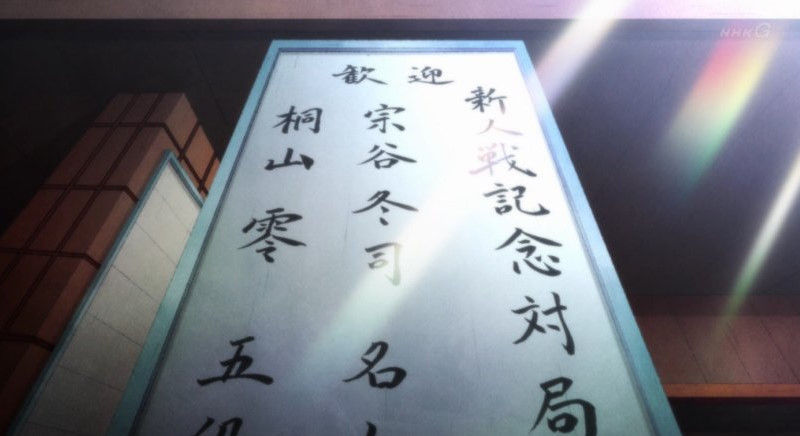 NHK G
歓迎
新人戦記念対局
宗谷冬司 名
桐山 零 五